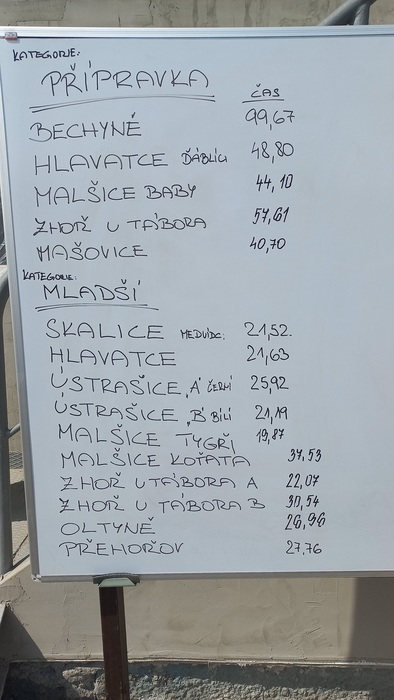 KATEGORIE:
PŘÍPRAVKA
ČAS
BECHYNĚ 99,67
HLAVATCE ĎÁBLÍCI 48,80
MALŠICE BABY 44,10
ZHOŘ U TÁBORA 57,61
MAŠOVICE 40,70
KATEGORIE:
MLADŠÍ
SKALICE MEDVÍDC: 21,52
HLAVATCE 21,63
ÚSTRAŠICE "A" ČERNÍ 25,92
ÚSTRAŠICE "B" BÍLÍ 21,19
MALŠICE TYGŘI 19,87
MALŠICE KOŤATA 37,53
ZHOŘ U TÁBORA A 22,07
ZHOŘ U TÁBORA B 30,54
OLTYNĚ 26,96
PŘEHOŘOV 27,76